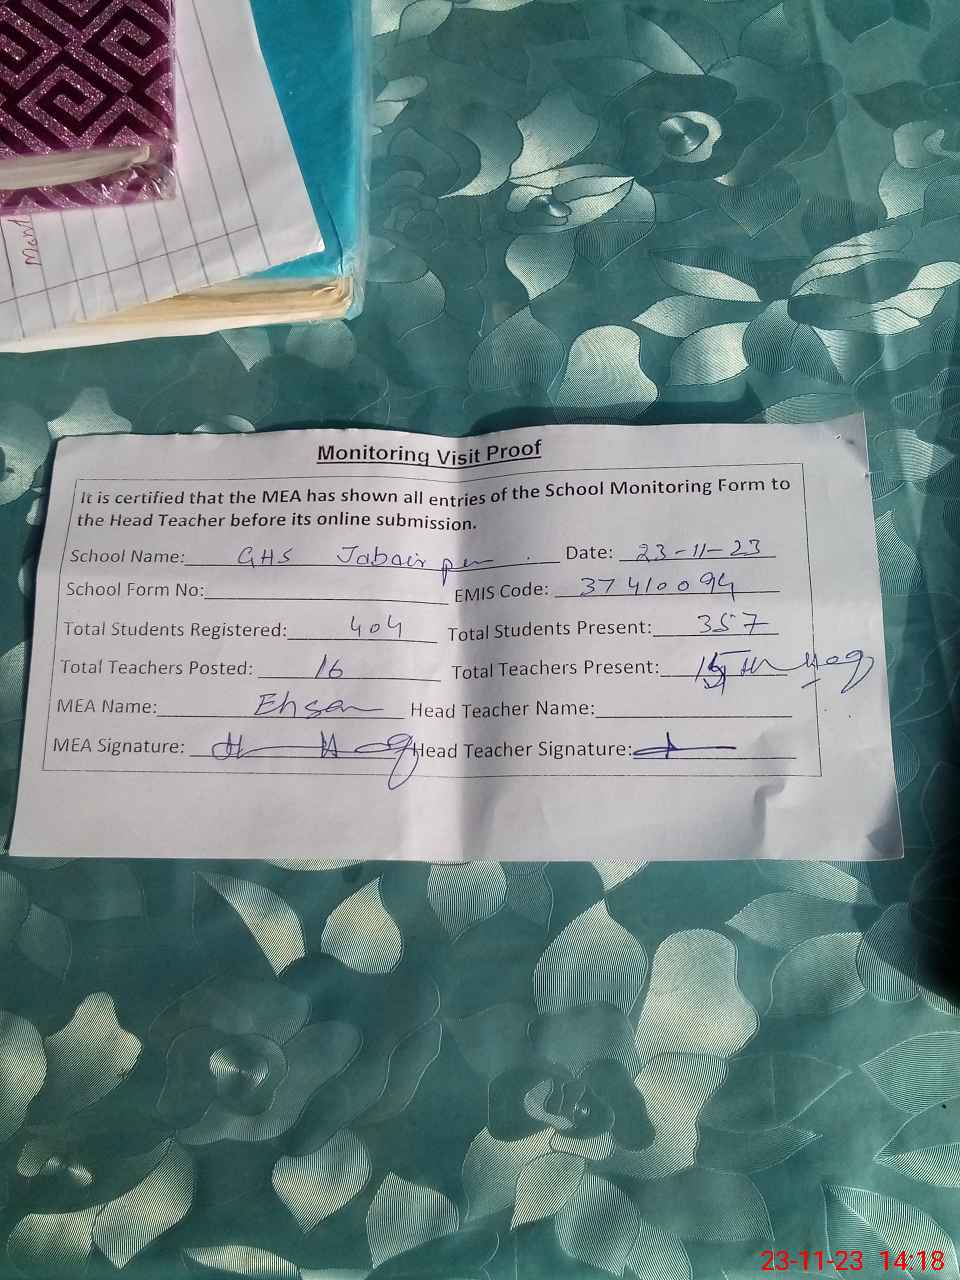 Mont
Monitoring Visit Proof
It is certified that the MEA has shown all entries of the School Monitoring Form to
the Head Teacher before its online submission.
School Name: GHS Jabair per Date: 23-11-23
School Form No: EMIS Code: 37410094
Total Students Registered: 404 Total Students Present: 357
Total Teachers Posted: 16 Total Teachers Present:
MEA Name: Ehsan Head Teacher Name:
MEA Signature: Head Teacher Signature:
23-11-23 14:18